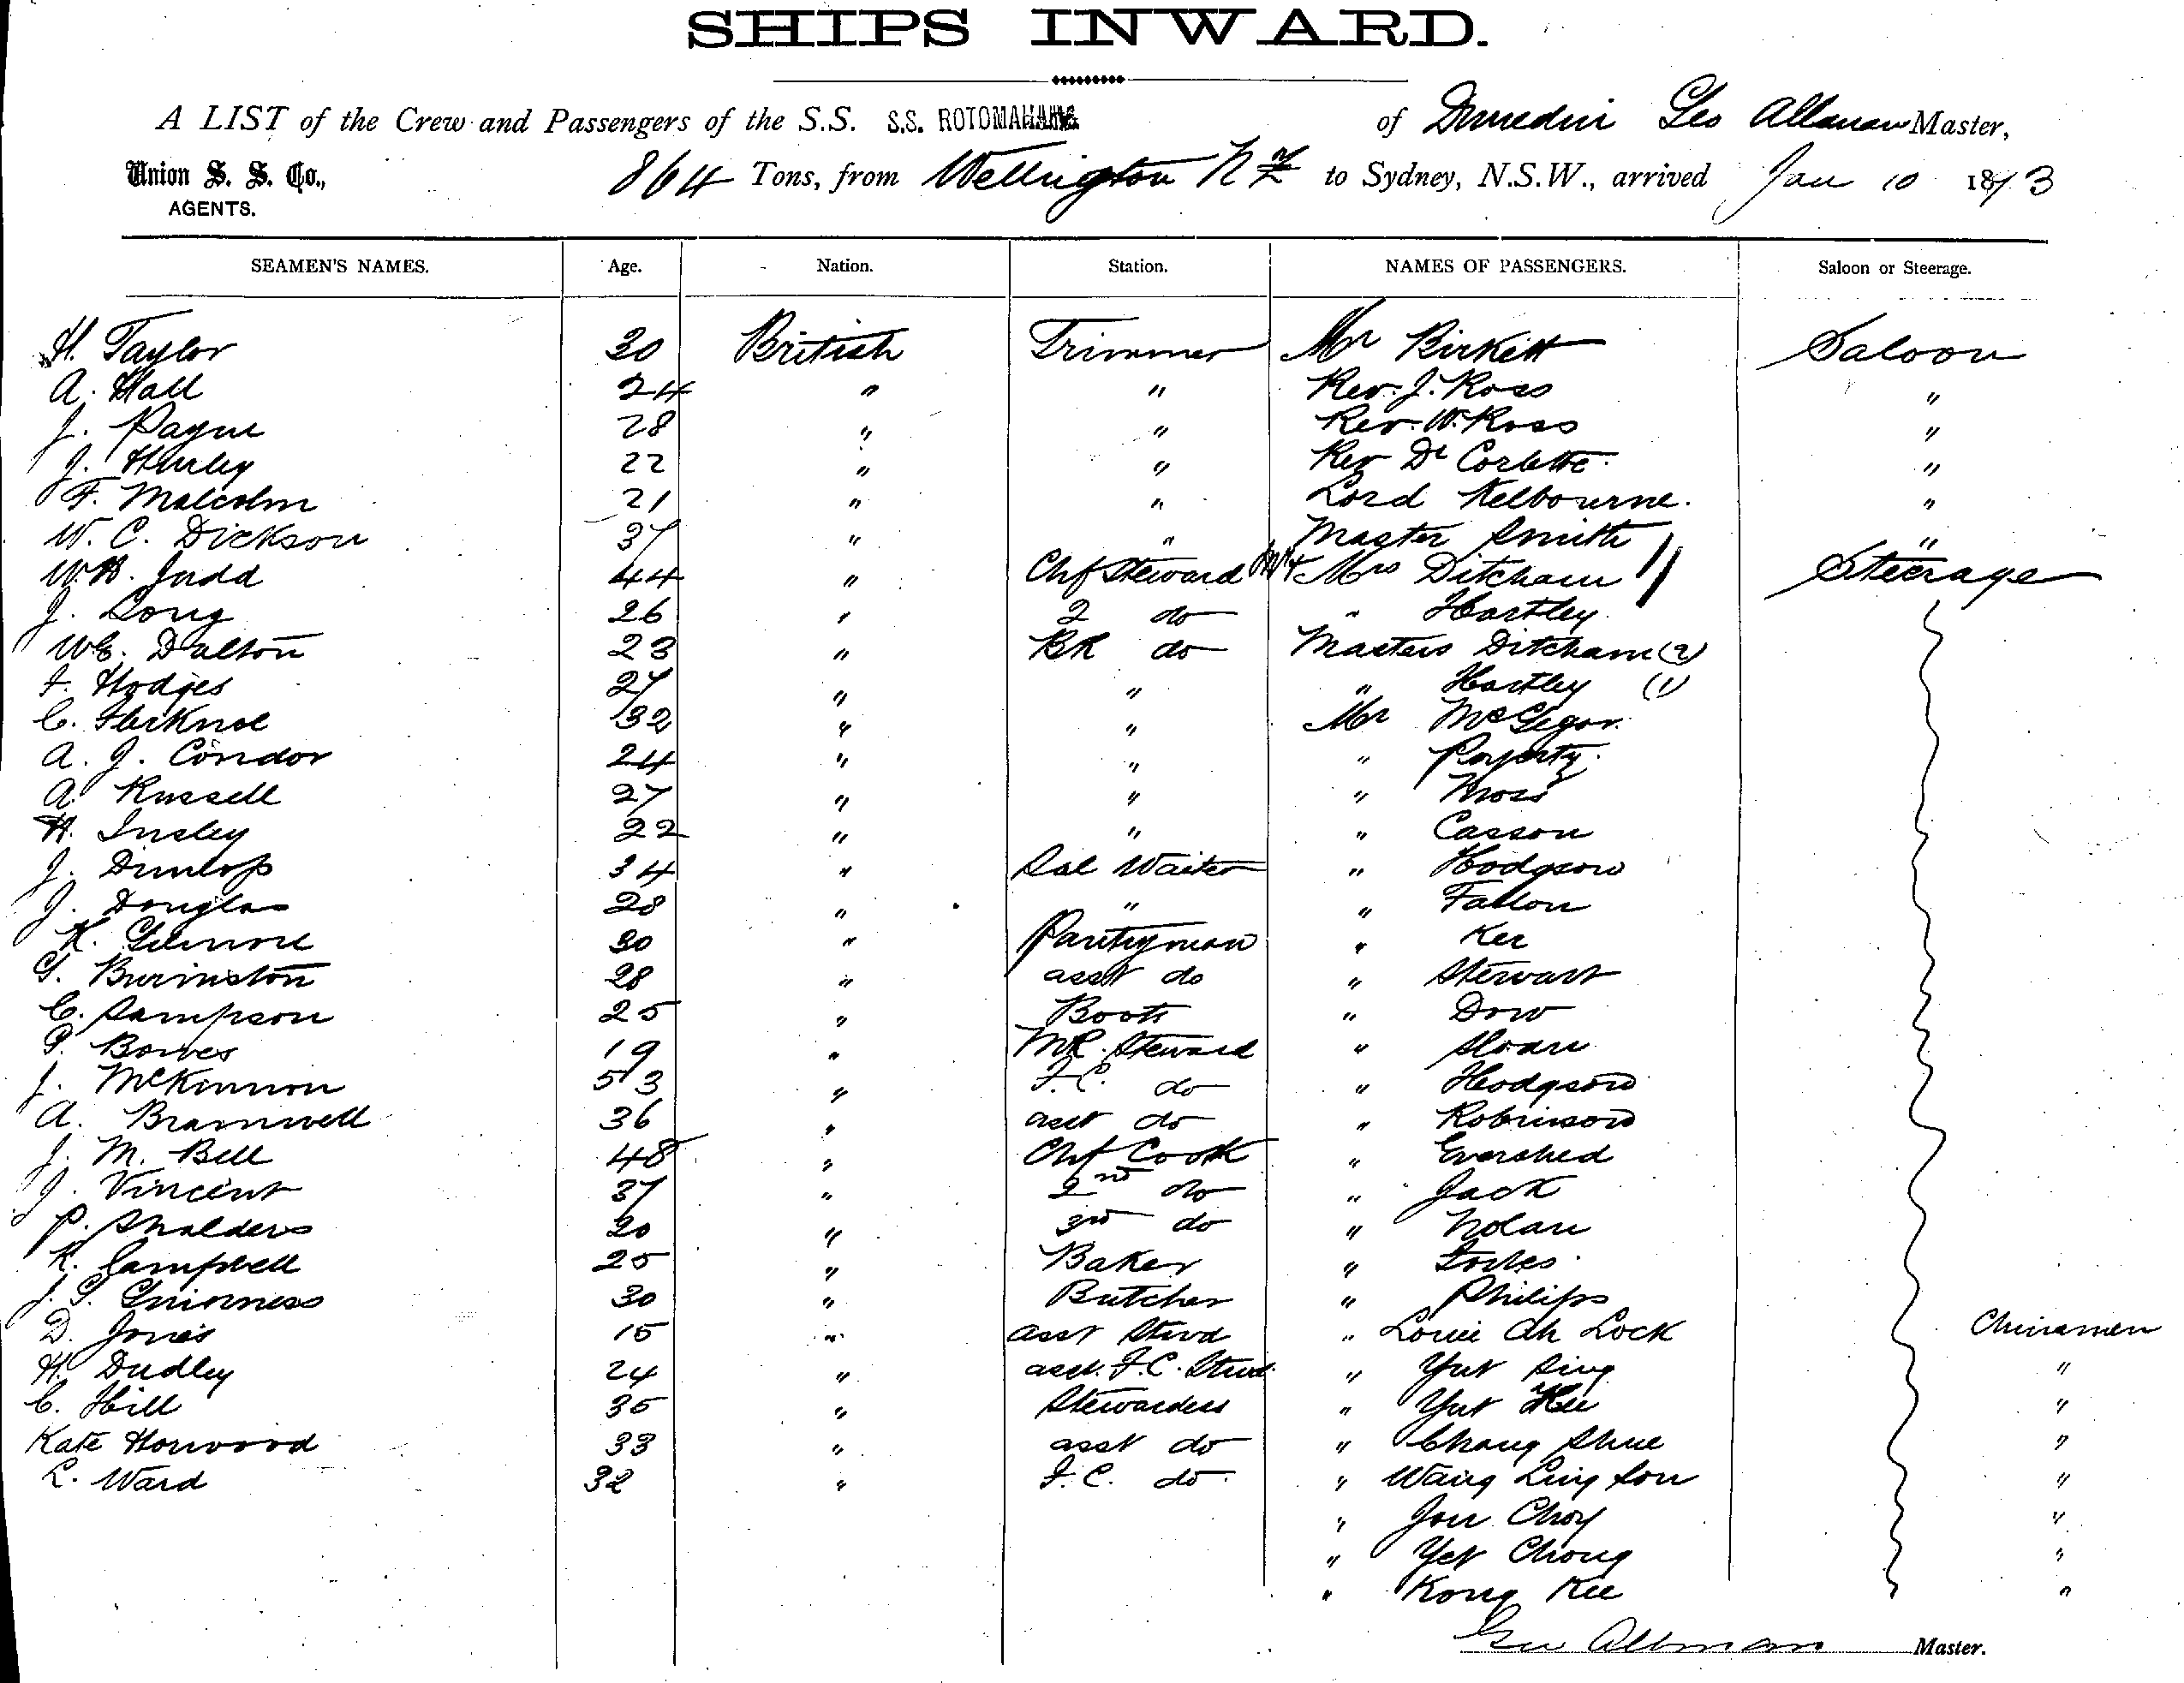 SHIPS INWARD.
A LIST of the Crew and Passengers of the S.S. S.S. ROTOMAHANA of Dunedin Geo Allman Master,
Union S. S. Co., 864 Tons, from Wellington NZ to Sydney, N.S.W., arrived Jan 10 1893
AGENTS.
SEAMEN'S NAMES. Age. Nation. Station. NAMES OF PASSENGERS. Saloon or Steerage.
H. Taylor 30 British Trimmer Mr Birkett Saloon
A. Hall 24 " " Rev. J. Ross "
J. Payne 28 " " Rev. W. Ross "
J. Hurley 22 " " Rev Dr Corlette "
F. Malcolm 21 " " Lord Kelbourne. "
W. C. Dickson 37 " " Master Smith "
W.H. Judd 44 " Chf Steward Mr & Mrs Ditcham Steerage
J. Long 26 " 2 do " Hartley
WE. Dalton 23 " BR do Masters Ditcham (2)
F. Hodges 27 " " " Hartley (1)
C. 32 " " Mr McGegor
A. J. Condor 24 " " "
A. Russell 27 " " " Moss
H. Insley 22 " " " Casson
J. Dunlop 34 " Sal Waiter " Hodgson
J. Douglas 28 " " " Fallon
K. Gilmore 30 " Pantryman " Ker
G. Burinston 28 " asst do " Stewart
C. Sampson 25 " Boots " Dow
G. Bowes 19 " MR. Steward " Sloan
J. McKinnon 53 " F.C. do " Hodgson
A. Bramwell 36 " asst do " Robinson
J. M. Bell 48 " Chf Cook " Evershed
J. Vincent 37 " 2nd do " Jack
P. Shalders 20 " 3rd do " Nolan
K. Campbell 25 " Baker " Forbes
J. G. Guinness 30 " Butcher " Philips
D. Jones 15 " asst Stwd " Louie Ah Lock Chinamen
H. Dudley 24 " asst. F.C. Stwd. " Yut Sing "
C. Hill 35 " Stewardess " Yut Hee "
Kate Horwood 33 " asst do " Chong Shue "
L. Ward 32 " F.C. do " Wang Ling Son "
" Jou Choy "
" Yet Chong "
" Kong Kee "
Geo Allman Master.